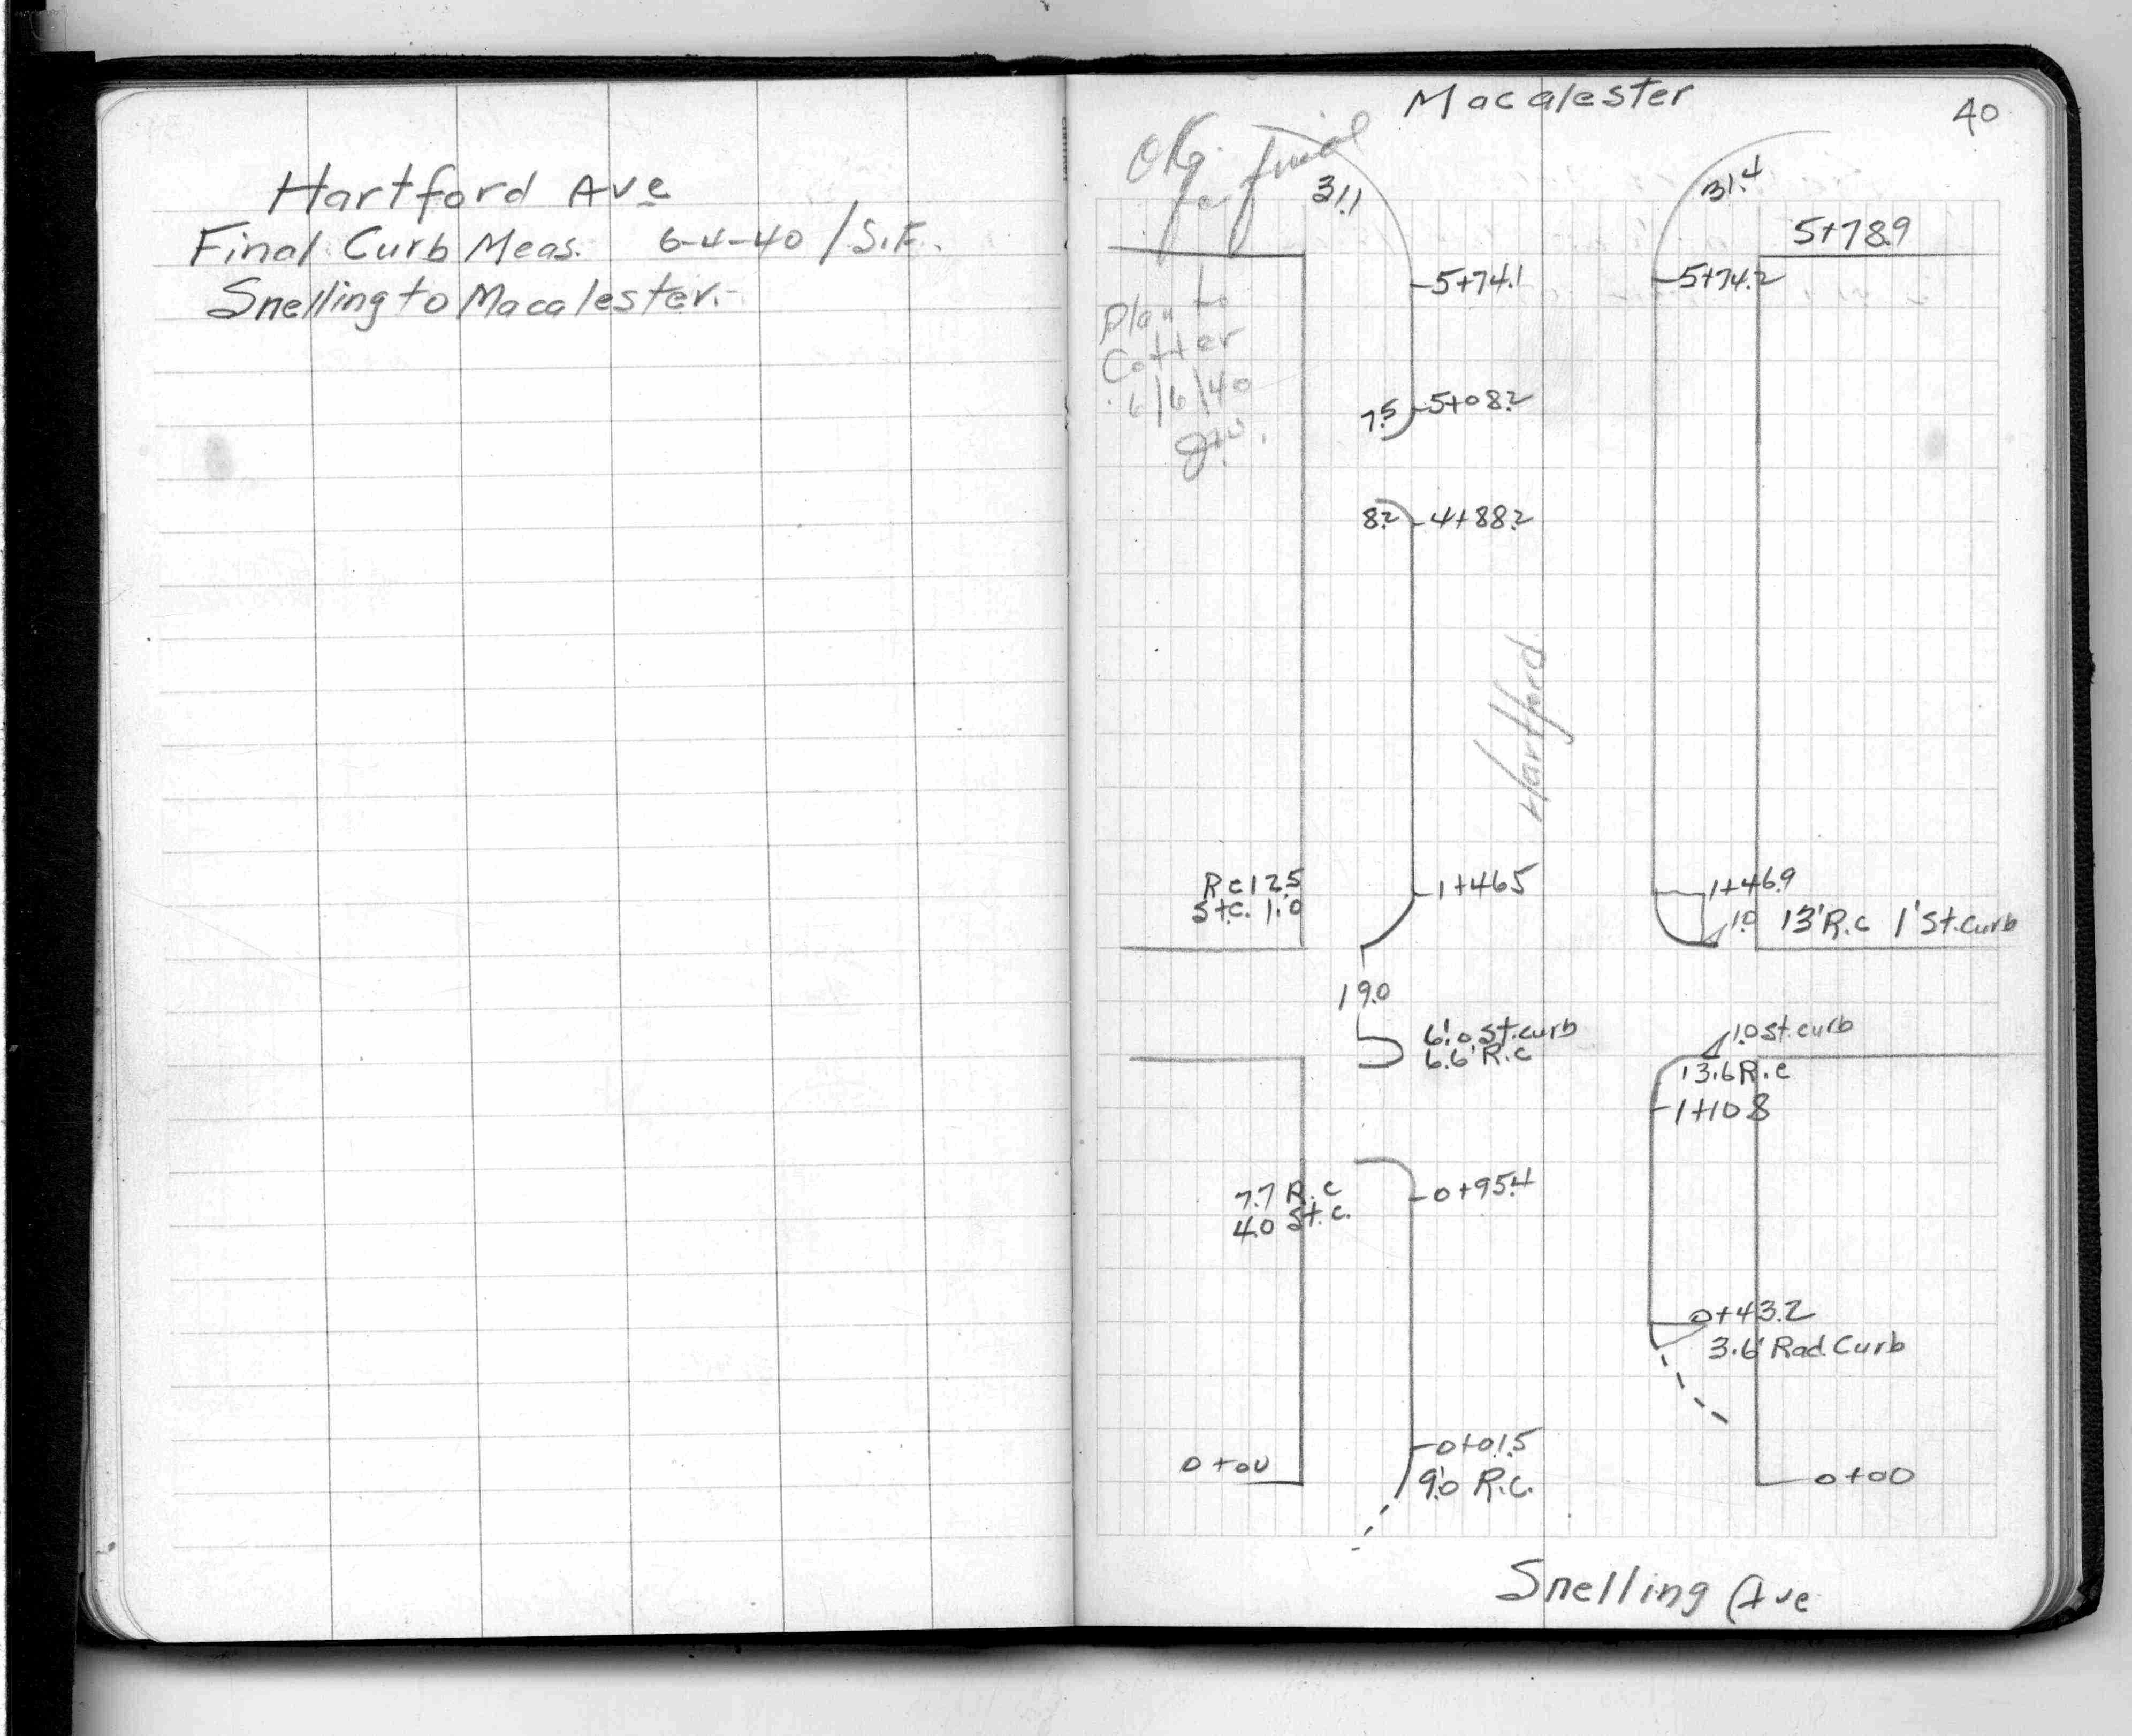 Hartford Ave
Final Curb Meas. 6-4-40 / S.F.
Snelling to Macalester.
Macalester
40
O.K. for final
31.1
31.4
5+78.9
5+74.1
5+74.2
Plan to
Cotter
6/6/40
7.5
5+08.2
8.2
4+88.2
Hartford
R c 12.5
St.c. 1.0
1+46.5
1+46.9
1.0
13' R.c 1' St. Curb
19.0
6.0 St. curb
6.6' R.c
1.0 st. curb
13.6 R.c
1+10.8
7.7 R.c
4.0 St. c.
0+95.4
0+43.2
3.6' Rad. Curb
0+01.5
9.0 R.C.
0+00
0+00
Snelling Ave